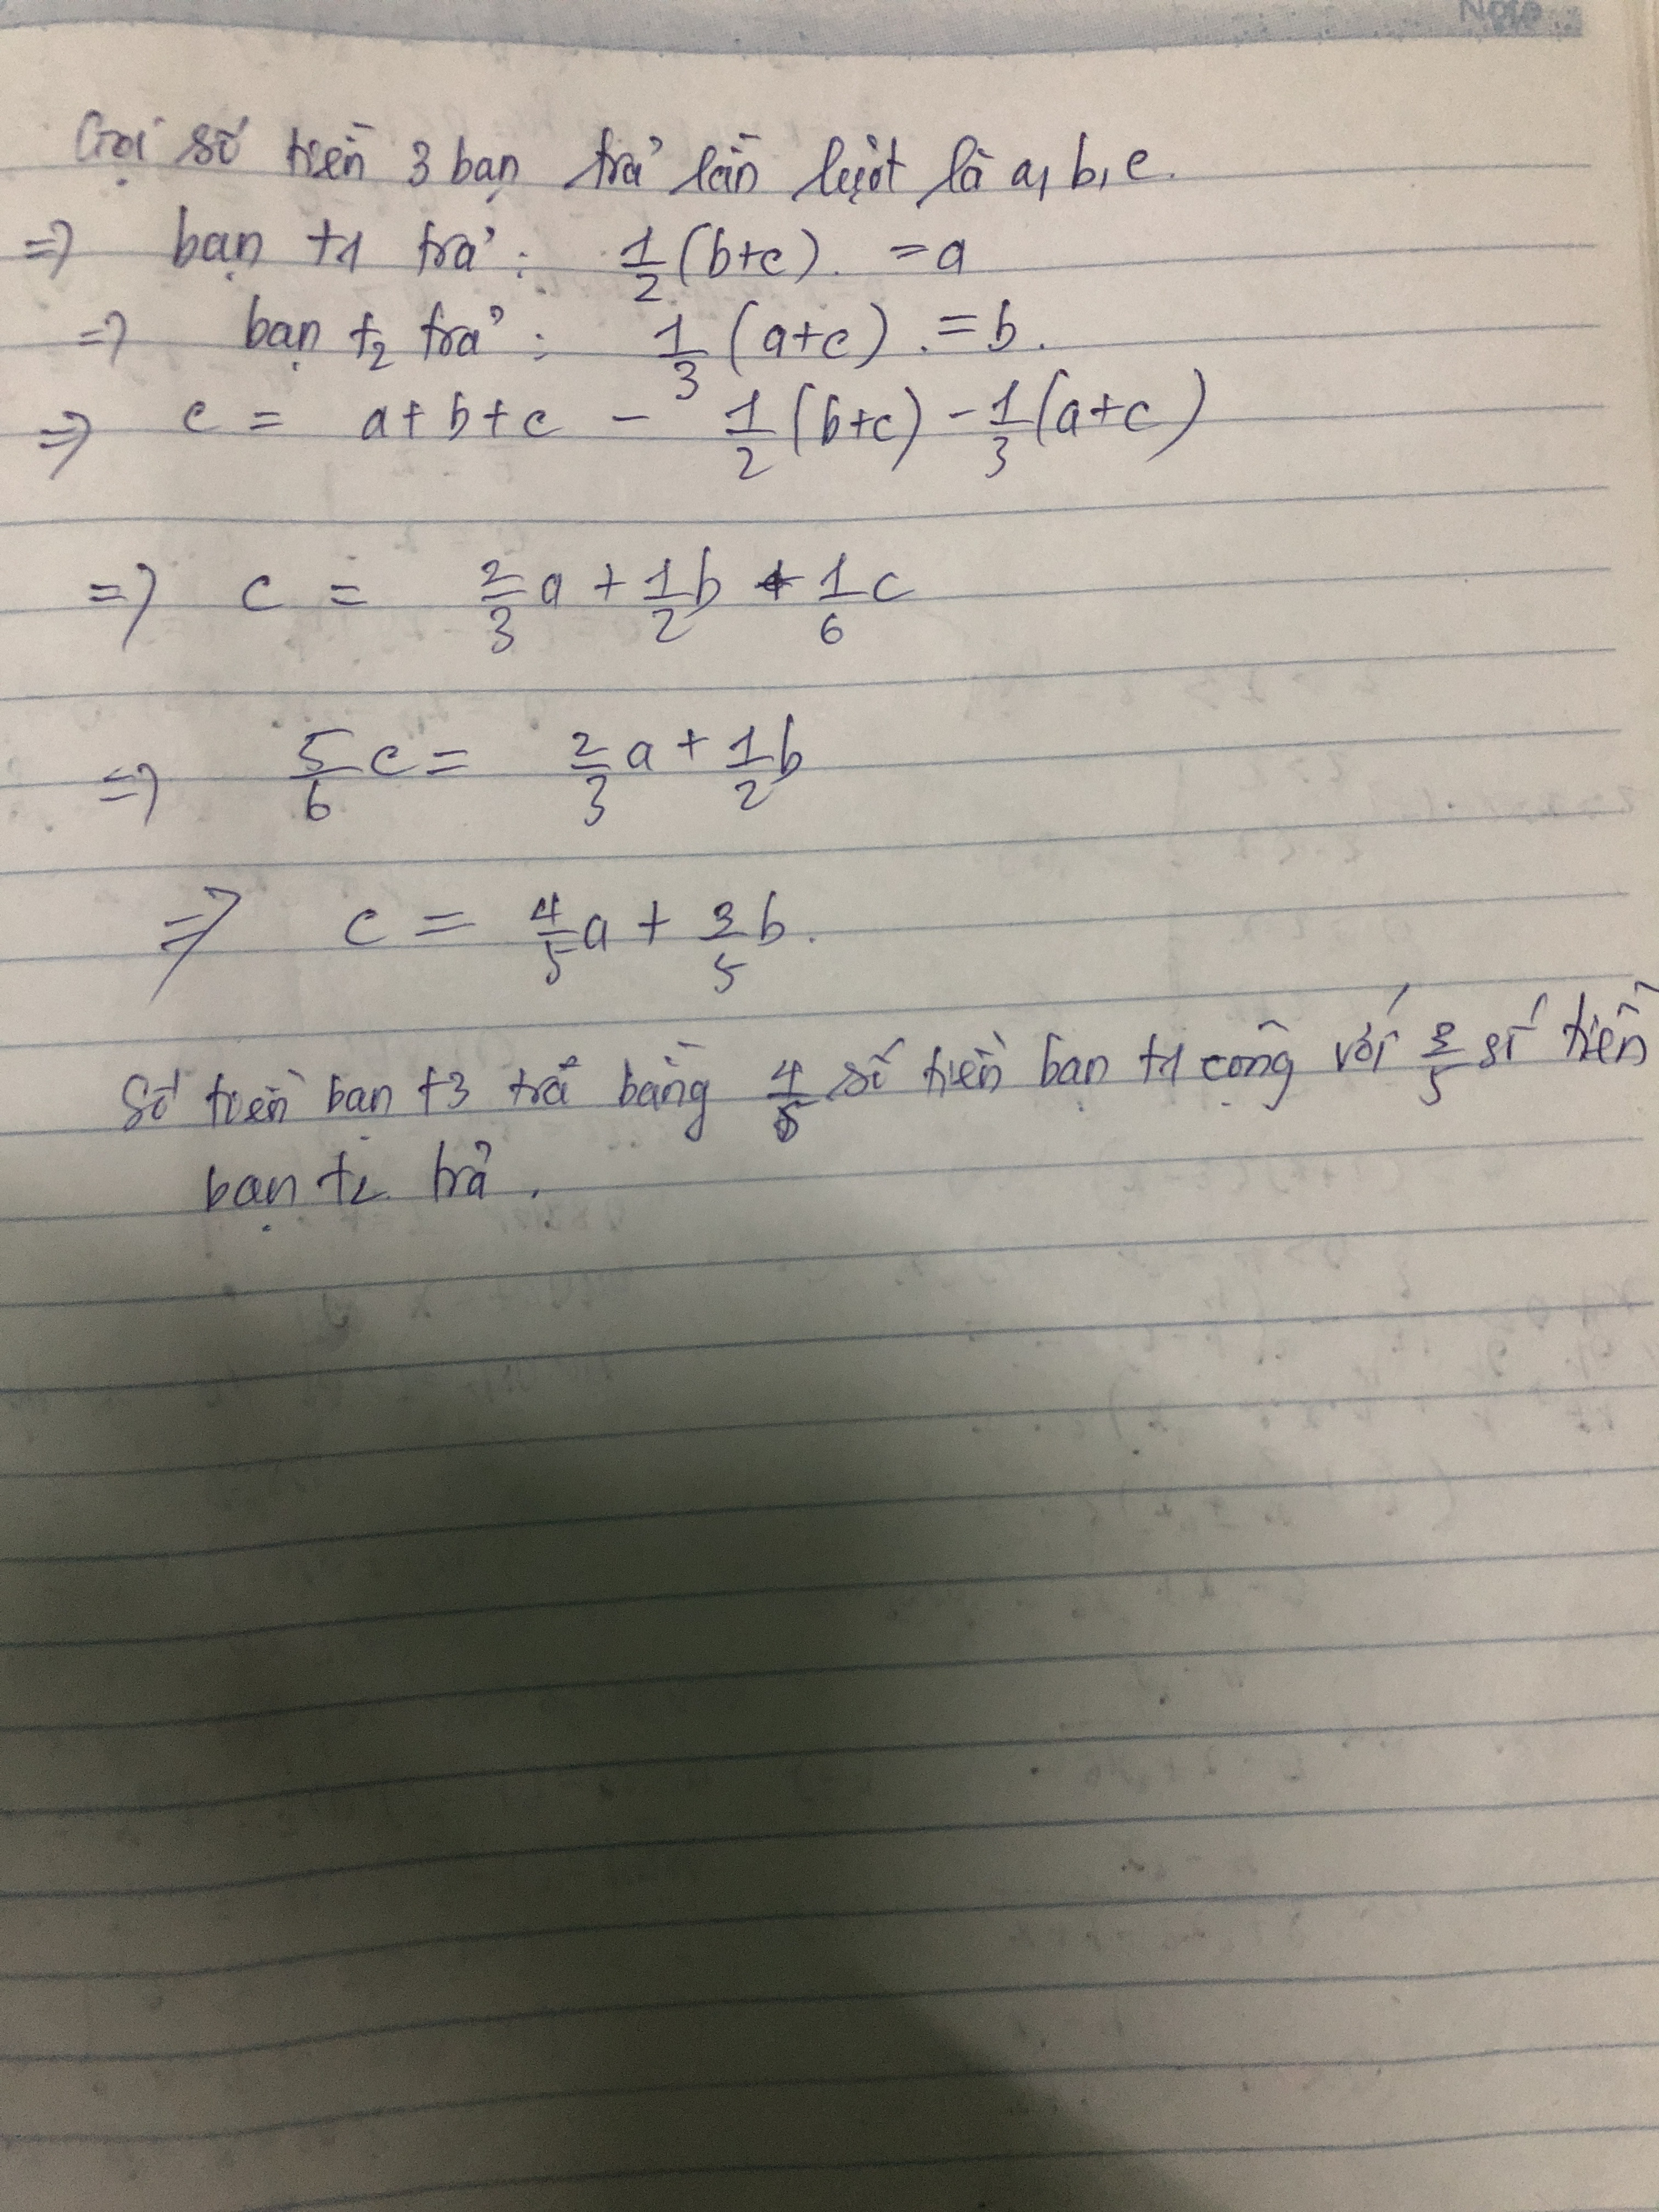 Note
Gọi số tiền 3 bạn trả lần lượt là a, b, c.
=> bạn t1 trả : 1/2 (b+c). = a
=> bạn t2 trả : 1/3 (a+c). = b.
=> c = a + b + c - 1/2 (b+c) - 1/3 (a+c)
=> c = 2/3 a + 1/2 b + 1/6 c
=> 5/6 c = 2/3 a + 1/2 b
=> c = 4/5 a + 3/5 b.
Số tiền bạn t3 trả bằng 4/5 số tiền bạn t1 cộng với 3/5 số tiền
bạn t2 trả.